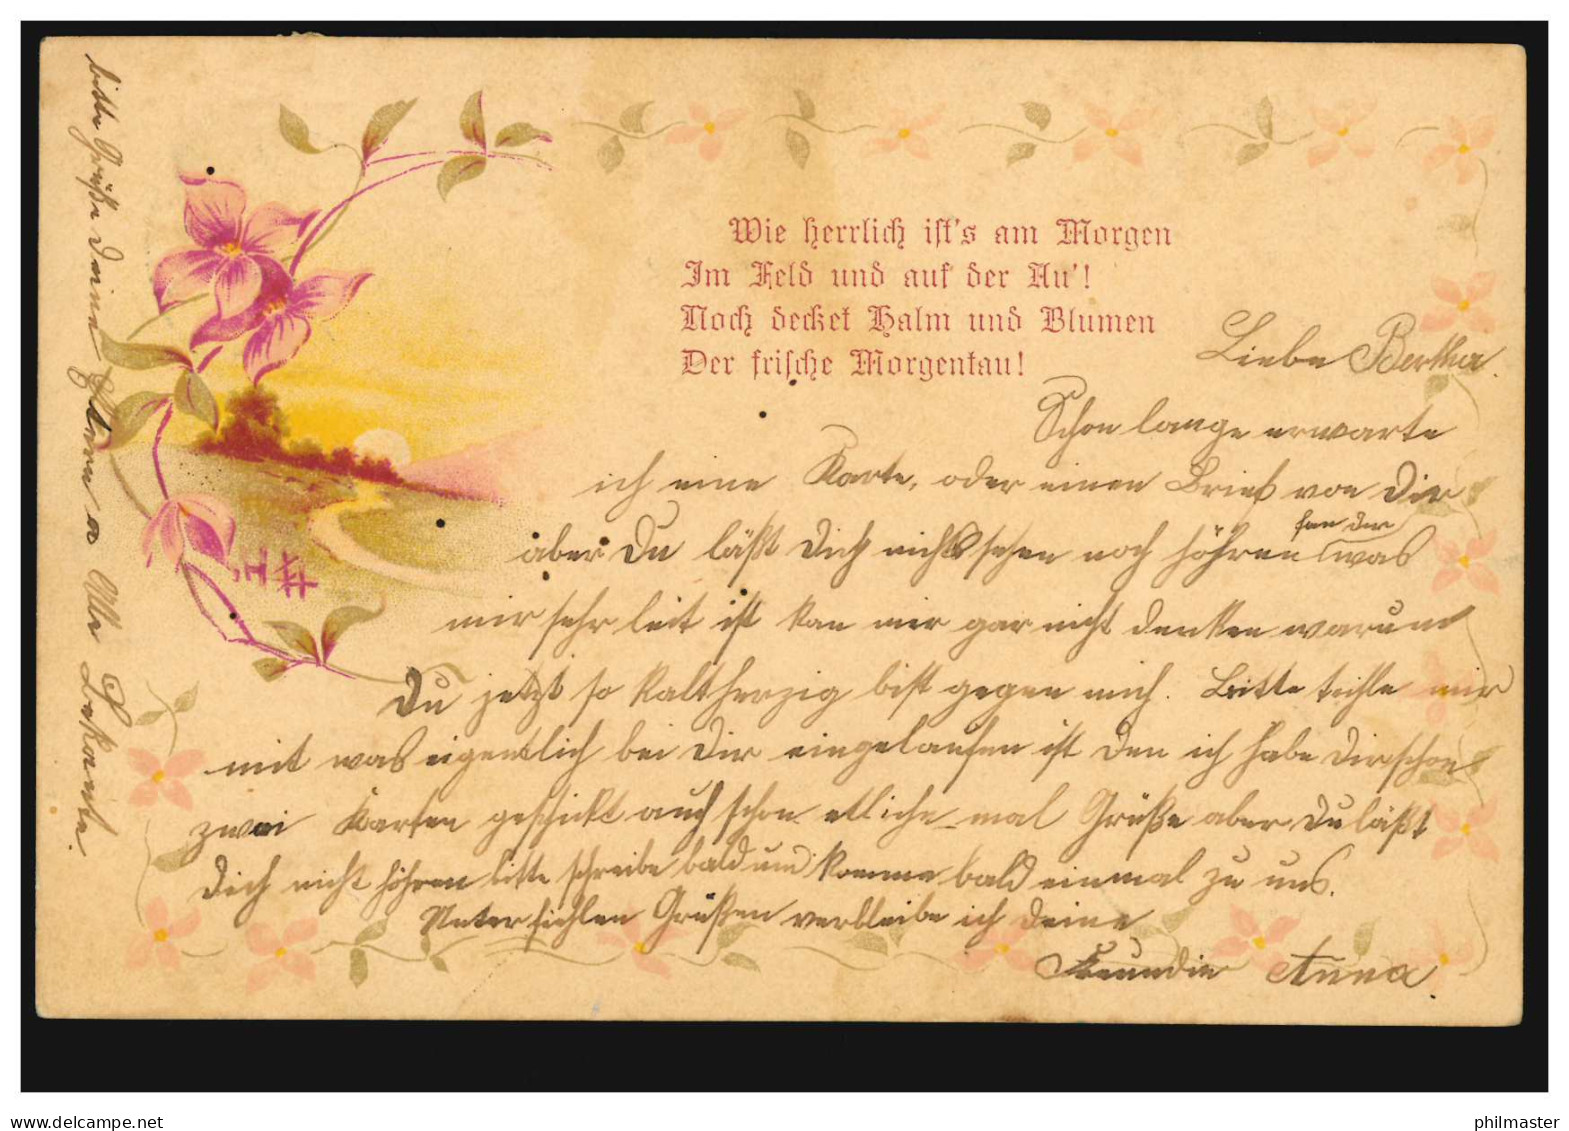 Wie herrlich ist's am Morgen
Im Feld und auf der Au'!
Noch decket Halm und Blumen
Der frische Morgentau!
Liebe Bertha.
Schon lange erwarte
ich eine Karte, oder einen Brief von Dir
aber Du läßt Dich nichts sehen noch höhren was
mir sehr leit ist kan mir gar nicht denken warum
Du jetzt so kaltherzig bist gegen mich. Bitte teihle mir
mit was eigentlich bei Dir eingelaufen ist den ich habe Dir schon
zwei Karten geschickt auch schon etliche mal Grüße aber Du läßt
Dich nicht höhren bitte schreibe bald und komme bald einmal zu uns.
Unter fiehlen Grüßen verbleibe ich Deine
Freundin Anna.
bitte Grüße Deine Eltern u Alle Bekante.
www.delcampe.net
philmaster